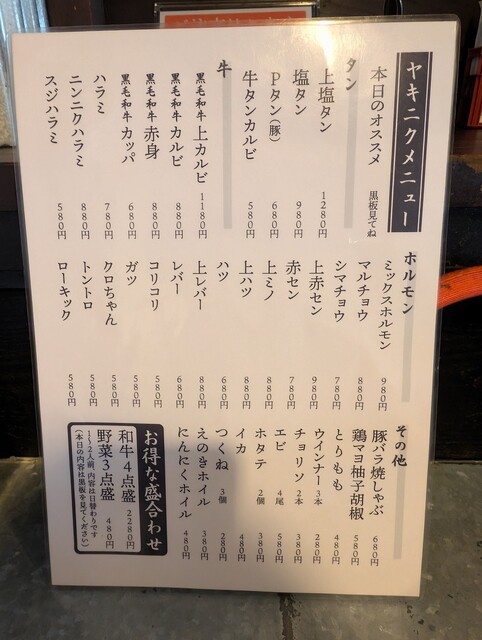 ヤキニクメニュー
本日のオススメ 黒板見てね
タン
上塩タン 1280円
塩タン 980円
Pタン(豚) 680円
牛タンカルビ 580円
牛
黒毛和牛 上カルビ 1180円
黒毛和牛 カルビ 880円
黒毛和牛 赤身 880円
黒毛和牛 カッパ 680円
ハラミ 780円
ニンニクハラミ 880円
スジハラミ 580円
ホルモン
ミックスホルモン 980円
マルチョウ 880円
シマチョウ 780円
上赤セン 980円
赤セン 780円
上ミノ 880円
上ハツ 880円
ハツ 680円
上レバー 880円
レバー 680円
コリコリ 580円
ガツ 580円
クロちゃん 580円
トントロ 580円
ローキック 580円
その他
豚バラ焼しゃぶ 680円
鶏マヨ柚子胡椒 580円
とりもも 480円
ウインナー 3本 280円
チョリソ 2本 380円
エビ 4尾 580円
ホタテ 2個 380円
イカ 480円
つくね 3個 280円
えのきホイル 380円
にんにくホイル 480円
お得な盛合わせ
和牛4点盛 2280円
野菜3点盛 480円
(1〜2人前、内容は日替わりです
本日の内容は黒板を見てください)